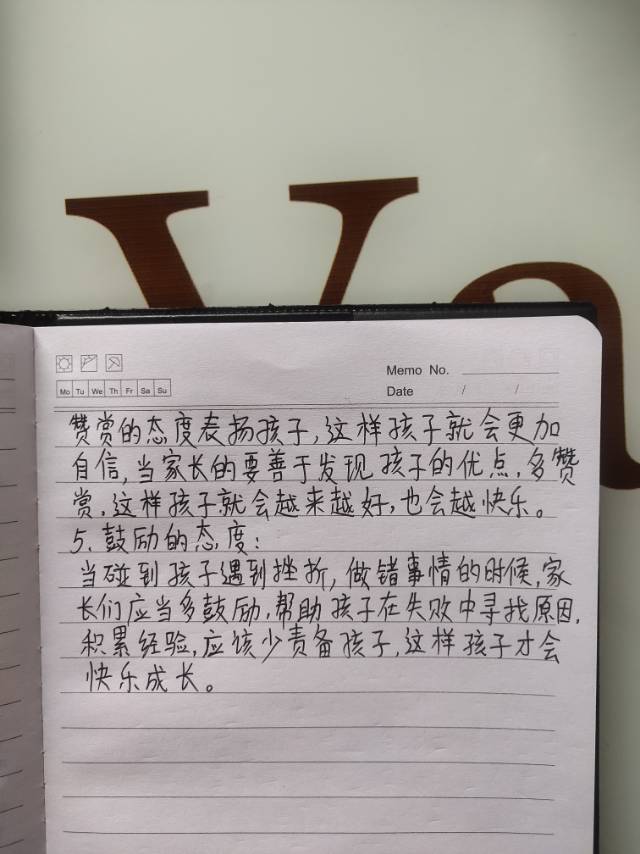 Va
Memo No.
Mo Tu We Th Fr Sa Su
Date / /
赞赏的态度表扬孩子,这样孩子就会更加
自信,当家长的要善于发现孩子的优点,多赞
赏,这样孩子就会越来越好,也会越快乐。
5、鼓励的态度:
当碰到孩子遇到挫折,做错事情的时候,家
长们应当多鼓励,帮助孩子在失败中寻找原因,
积累经验,应该少责备孩子,这样孩子才会
快乐成长。